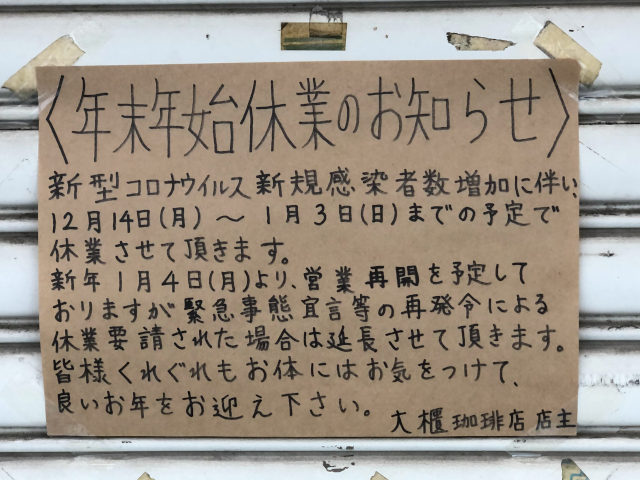 〈年末年始休業のお知らせ〉
新型コロナウイルス新規感染者数増加に伴い、
12月14日(月)～1月3日(日)までの予定で
休業させて頂きます。
新年1月4日(月)より、営業再開を予定して
おりますが緊急事態宣言等の再発令による
休業要請された場合は延長させて頂きます。
皆様くれぐれもお体にはお気をつけて、
良いお年をお迎え下さい。
大櫃珈琲店 店主